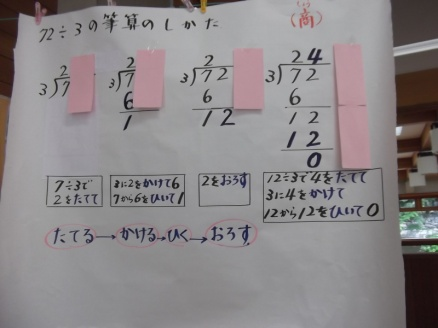 72÷3の筆算のしかた
(商)
2
3)7
2
3)7
6
1
2
3)72
6
12
24
3)72
6
12
12
0
7÷3で
2をたてて
3に2をかけて6
7から6をひいて1
2をおろす
12÷3で4をたてて
3に4をかけて
12から12をひいて0
たてる→かける→ひく→おろす